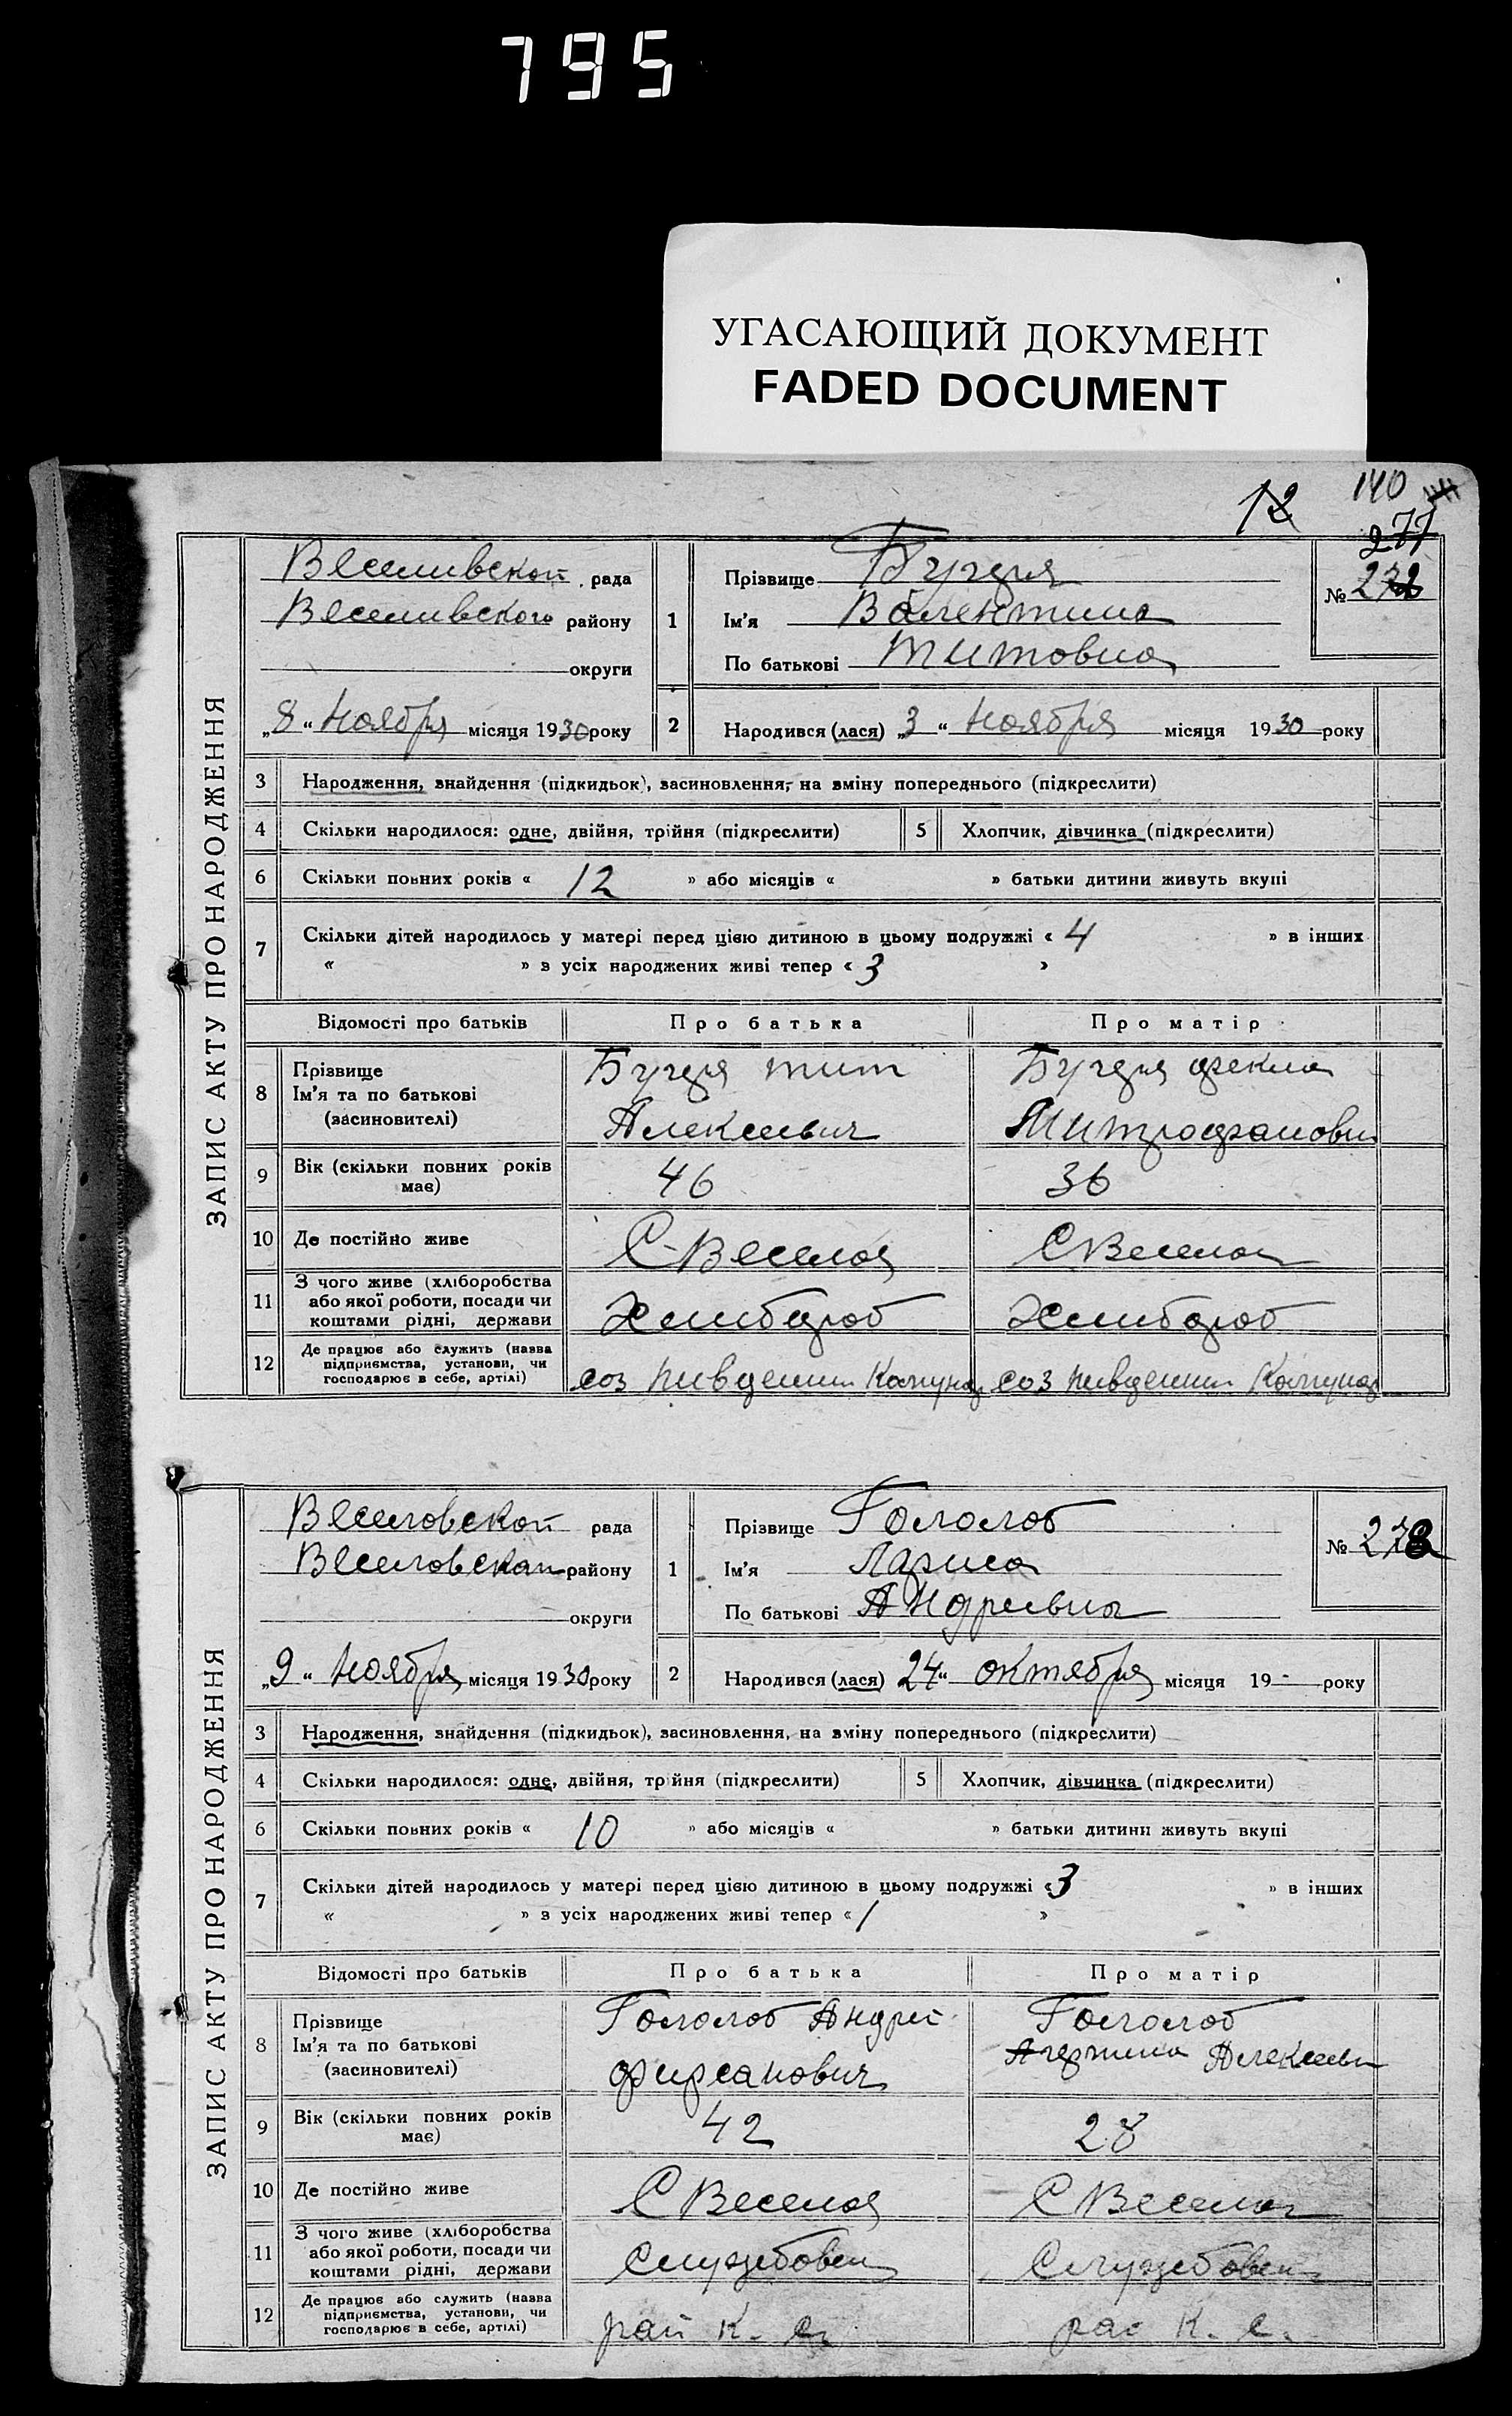 795
УГАСАЮЩИЙ ДОКУМЕНТ
FADED DOCUMENT
12 140
277
ЗАПИС АКТУ ПРО НАРОДЖЕННЯ
Веселивской рада
Веселивского району
округи
„8“ Ноября місяця 1930 року
1 Прізвище Бугдря
Ім'я Валентина
По батькові Титовна
№ 272
2 Народився (лася) „3“ Ноября місяця 1930 року
3 Народження, знайдення (підкидьок), засиновлення, на зміну попереднього (підкреслити)
4 Скільки народилося: одне, двійня, трійня (підкреслити) 5 Хлопчик, дівчинка (підкреслити)
6 Скільки повних років « 12 » або місяців « » батьки дитини живуть вкупі
7 Скільки дітей народилось у матері перед цією дитиною в цьому подружжі « 4 » в інших
« » з усіх народжених живі тепер « 3 »
Відомості про батьків Про батька Про матір
8 Прізвище
Ім'я та по батькові
(засиновителі)
Бугдря Тит
Алексеевич
Бугдря Фекла
Митрофановн
9 Вік (скільки повних років
має)
46 36
10 Де постійно живе С-Веселоя С Веселоя
11 З чого живе (хліборобства
або якої роботи, посади чи
коштами рідні, держави
Хлибороб Хлибороб
12 Де працює або служить (назва
підприємства, установи, чи
господарює в себе, артілі)
соз пивденни Комунар соз пивденни Комунар
ЗАПИС АКТУ ПРО НАРОДЖЕННЯ
Веселовской рада
Веселовскаи району
округи
„9“ Ноября місяця 1930 року
1 Прізвище Гололоб
Ім'я Лариса
По батькові Андреевна
№ 278
2 Народився (лася) 24“ октября місяця 19- року
3 Народження, знайдення (підкидьок), засиновлення, на зміну попереднього (підкреслити)
4 Скільки народилося: одне, двійня, трійня (підкреслити) 5 Хлопчик, дівчинка (підкреслити)
6 Скільки повних років « 10 » або місяців « » батьки дитини живуть вкупі
7 Скільки дітей народилось у матері перед цією дитиною в цьому подружжі « 3 » в інших
« » з усіх народжених живі тепер « 1 »
Відомості про батьків Про батька Про матір
8 Прізвище
Ім'я та по батькові
(засиновителі)
Гололоб Андрей
Фирсанович
Гололоб
Алексеевн
9 Вік (скільки повних років
має)
42 28
10 Де постійно живе С Веселоя С Веселоя
11 З чого живе (хліборобства
або якої роботи, посади чи
коштами рідні, держави
Службовец Службовец
12 Де працює або служить (назва
підприємства, установи, чи
господарює в себе, артілі)
рай К. с. рай К. с.